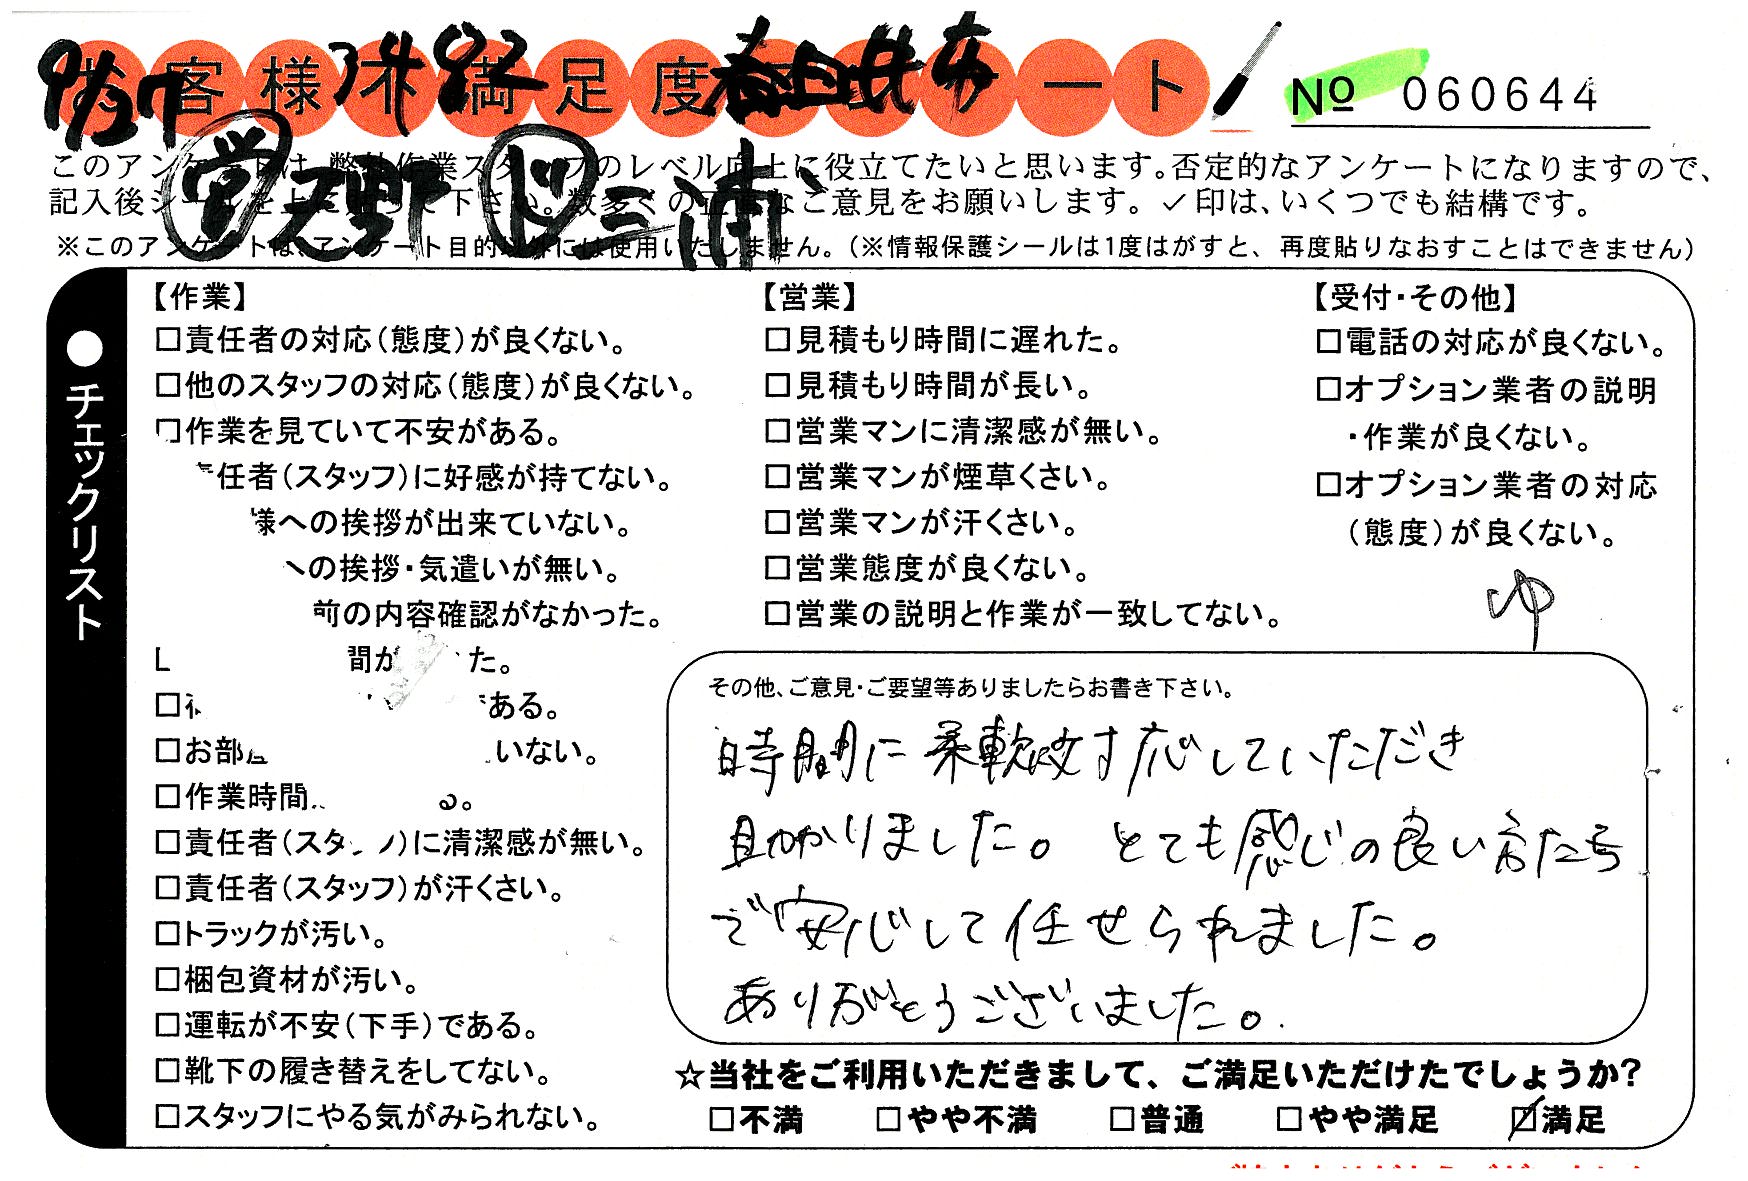 9/27 3482 春日井市
お客様不満足度アンケート
№ 060644
営 天野 ド 三浦
このアンケートは、弊社作業スタッフのレベル向上に役立てたいと思います。否定的なアンケートになりますので、
記入後シールを上に貼って下さい。数多くの正直なご意見をお願いします。✓印は、いくつでも結構です。
※このアンケートは、アンケート目的以外には使用いたしません。(※情報保護シールは1度はがすと、再度貼りなおすことはできません)
●チェックリスト
【作業】
□責任者の対応(態度)が良くない。
□他のスタッフの対応(態度)が良くない。
□作業を見ていて不安がある。
任者(スタッフ)に好感が持てない。
様への挨拶が出来ていない。
への挨拶・気遣いが無い。
前の内容確認がなかった。
間が た。
□ である。
□お部屋 いない。
□作業時間 る。
□責任者(スタッフ)に清潔感が無い。
□責任者(スタッフ)が汗くさい。
□トラックが汚い。
□梱包資材が汚い。
□運転が不安(下手)である。
□靴下の履き替えをしてない。
□スタッフにやる気がみられない。
【営業】
□見積もり時間に遅れた。
□見積もり時間が長い。
□営業マンに清潔感が無い。
□営業マンが煙草くさい。
□営業マンが汗くさい。
□営業態度が良くない。
□営業の説明と作業が一致してない。
【受付・その他】
□電話の対応が良くない。
□オプション業者の説明
・作業が良くない。
□オプション業者の対応
(態度)が良くない。
ゆ
その他、ご意見・ご要望等ありましたらお書き下さい。
時間に柔軟対応していただき
助かりました。とても感じの良い方たち
で安心して任せられました。
ありがとうございました。
☆当社をご利用いただきまして、ご満足いただけたでしょうか?
□不満 □やや不満 □普通 □やや満足 ☑満足